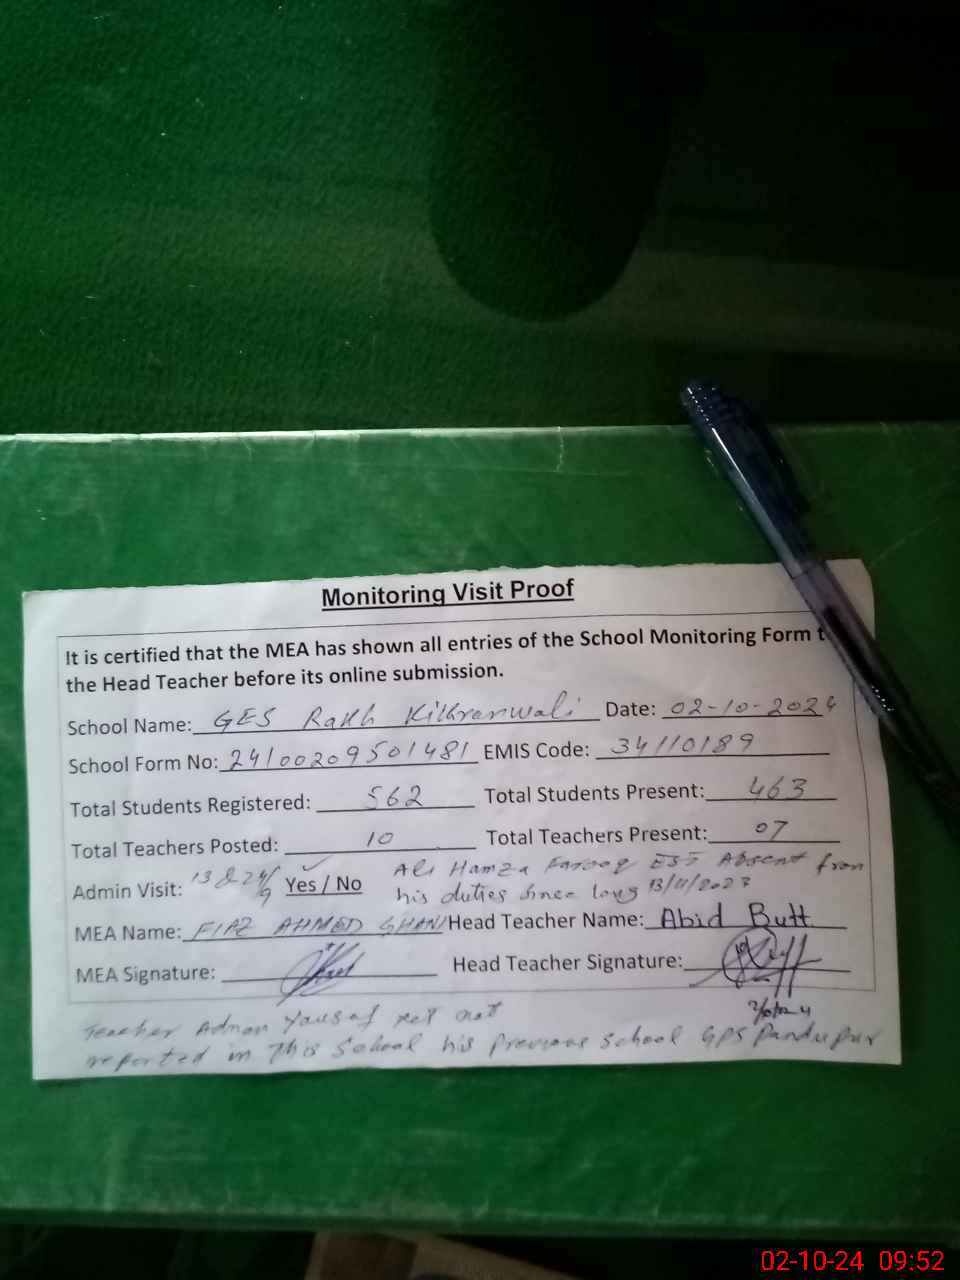 Monitoring Visit Proof
It is certified that the MEA has shown all entries of the School Monitoring Form t
the Head Teacher before its online submission.
School Name: GES Rakh Kikranwali Date: 02-10-2024
School Form No: 24100209501481 EMIS Code: 34110189
Total Students Registered: 562 Total Students Present: 463
Total Teachers Posted: 10 Total Teachers Present: 07
Admin Visit: 13 & 24/9 Yes / No Ali Hamza Farooq EST Absent from
his duties since long 13/11/2023
MEA Name: FIAZ AHMED GHANI Head Teacher Name: Abid Butt
MEA Signature: Head Teacher Signature:
Teacher Adnan Yousaf not
reported in This School his previous school GPS Pandupur
02-10-24 09:52